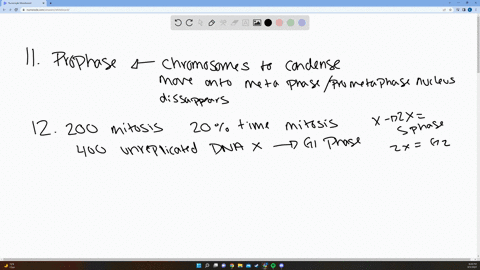 11. Prophase ← chromosomes to condense
move onto metaphase/prometaphase nucleus
dissappears
12. 200 mitosis 20% time mitosis
400 unreplicated DNA X → G1 Phase
X→2X =
S phase
2X = G2